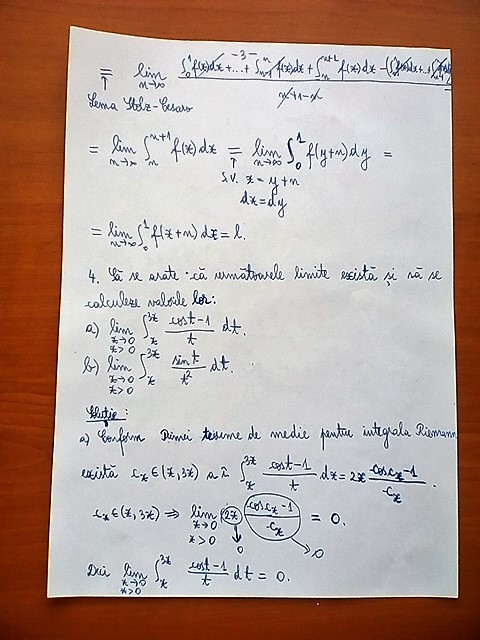 -3-
= lim_{n→∞} (∫_0^1 f(x)dx+...+∫_{n-1}^n f(x)dx + ∫_n^{n+1} f(x)dx - (∫_0^1 f(x)dx+...+
n+1-n
Lema Stolz-Cesaro
= lim_{n→∞} ∫_n^{n+1} f(x)dx = lim_{n→∞} ∫_0^1 f(y+n)dy =
S.V. x = y+n
dx = dy
= lim_{n→∞} ∫_0^1 f(x+n)dx = l.
4. Să se arate că următoarele limite există și să se
calculeze valorile lor:
a) lim_{x→0, x>0} ∫_x^{3x} (cost-1)/t dt.
b) lim_{x→0, x>0} ∫_x^{3x} sint/t² dt.
Soluție:
a) Conform Primei teoreme de medie pentru integrala Riemann
există c_x∈(x,3x) a.î. ∫_x^{3x} (cost-1)/t dx = 2x (cosc_x-1)/c_x.
c_x∈(x,3x) ⇒ lim_{x→0, x>0} 2x (cosc_x-1)/c_x = 0.
0 0
Deci lim_{x→0, x>0} ∫_x^{3x} (cost-1)/t dt = 0.